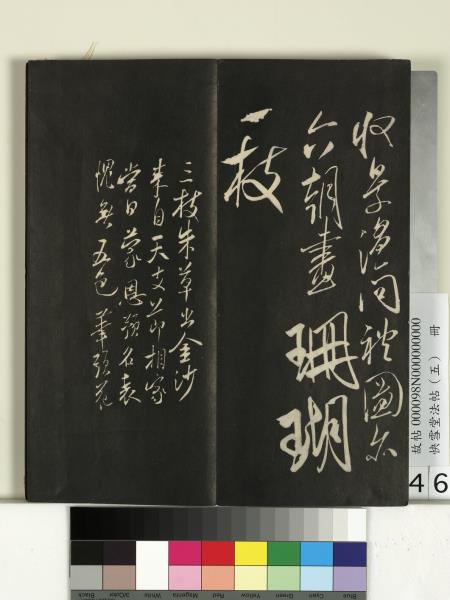 收景溫問禮圖亦
六朝畫珊瑚
一枝
三枝朱草出金沙
來自天支節相家
當日蒙恩預名表
愧無五色筆頭花
故帖 000098N000000000
快雪堂法帖（五） 冊
46
Blue Cyan Green Yellow Red Magenta White 3/Color Black